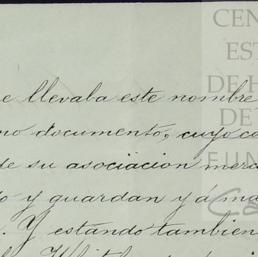 CEN
EST
DE H
DE
FUN
e llevaba este nombre
no documento, cuyo co
de su asociacion merc
o y guardan y á ma
. Y estando tambien